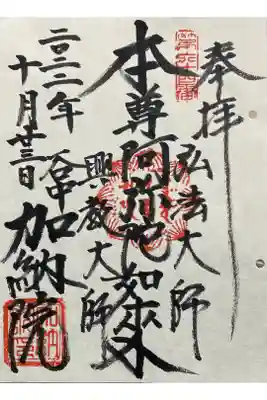 奉拝
第六十四番
弘法大師
本尊阿弥陀如来
興教大師
谷中 加納院
二〇二二年
十月廿三日